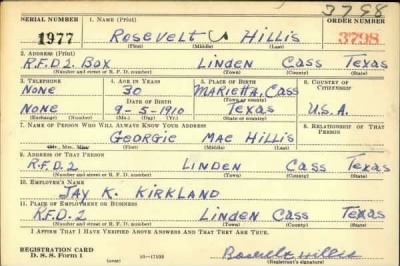 3798
SERIAL NUMBER 1. NAME (Print) ORDER NUMBER
1977 ROSEVELT HILLIS 3798
(First) (Middle) (Last)
2. ADDRESS (Print)
R.F.D 2. BOX LINDEN CASS TEXAS
(Number and street or R. F. D. number) (Town) (County) (State)
3. TELEPHONE 4. AGE IN YEARS 5. PLACE OF BIRTH 6. COUNTRY OF CITIZENSHIP
NONE 30 MARIETTA, CASS
(Town or county)
DATE OF BIRTH
NONE 9-5-1910 TEXAS U.S.A.
(Exchange) (Number) (Mo.) (Day) (Yr.) (State or country)
7. NAME OF PERSON WHO WILL ALWAYS KNOW YOUR ADDRESS 8. RELATIONSHIP OF THAT PERSON
GEORGIE MAE HILLIS
Mr., Mrs., Miss (First) (Middle) (Last)
9. ADDRESS OF THAT PERSON
R.F.D. 2 LINDEN CASS TEXAS
(Number and street or R. F. D. number) (Town) (County) (State)
10. EMPLOYER'S NAME
JAY K. KIRKLAND
11. PLACE OF EMPLOYMENT OR BUSINESS
R.F.D. 2 LINDEN CASS TEXAS
(Number and street or R. F. D. number) (Town) (County) (State)
I AFFIRM THAT I HAVE VERIFIED ABOVE ANSWERS AND THAT THEY ARE TRUE.
REGISTRATION CARD
D. S. S. Form 1 16-17105 Rosevelt Hillis
(Registrant's signature)